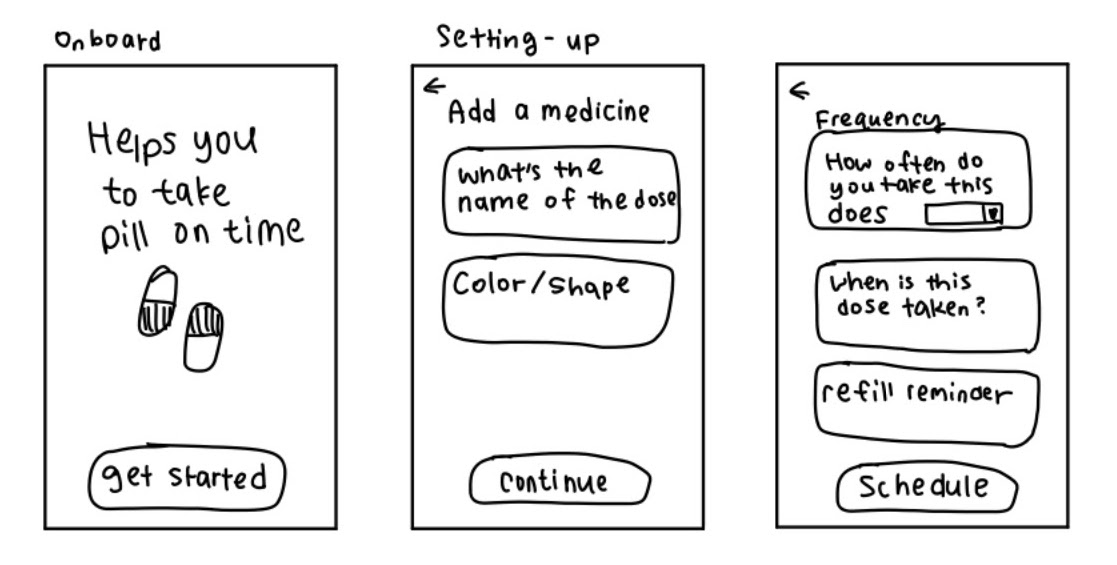 Onboard
Helps you
to take
pill on time
get started
Setting-up
Add a medicine
what's the
name of the dose
Color/Shape
Continue
Frequency
How often do
you take this
does
When is this
dose taken?
refill reminder
Schedule